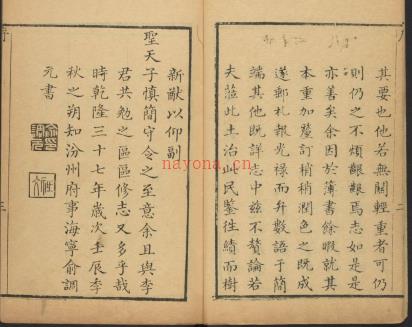 其要也他若無關輕重者可仍
則仍之不煩覼觀焉志如是是
亦善矣余因於薄書餘暇就其
本重加釐訂稍稍潤色之既成
遂郵札報光祿而弁數語于簡
端其他既詳志中茲不贅論若
夫蒞此土治此民鑒徃績而樹
新猷以仰副
聖天子慎簡守令之至意余且與李
君共勉之區區修志又多乎哉
時乾隆三十七年歲次壬辰季
秋之朔知汾州府事海寧俞調
元書
序
三
二
nayona.cn